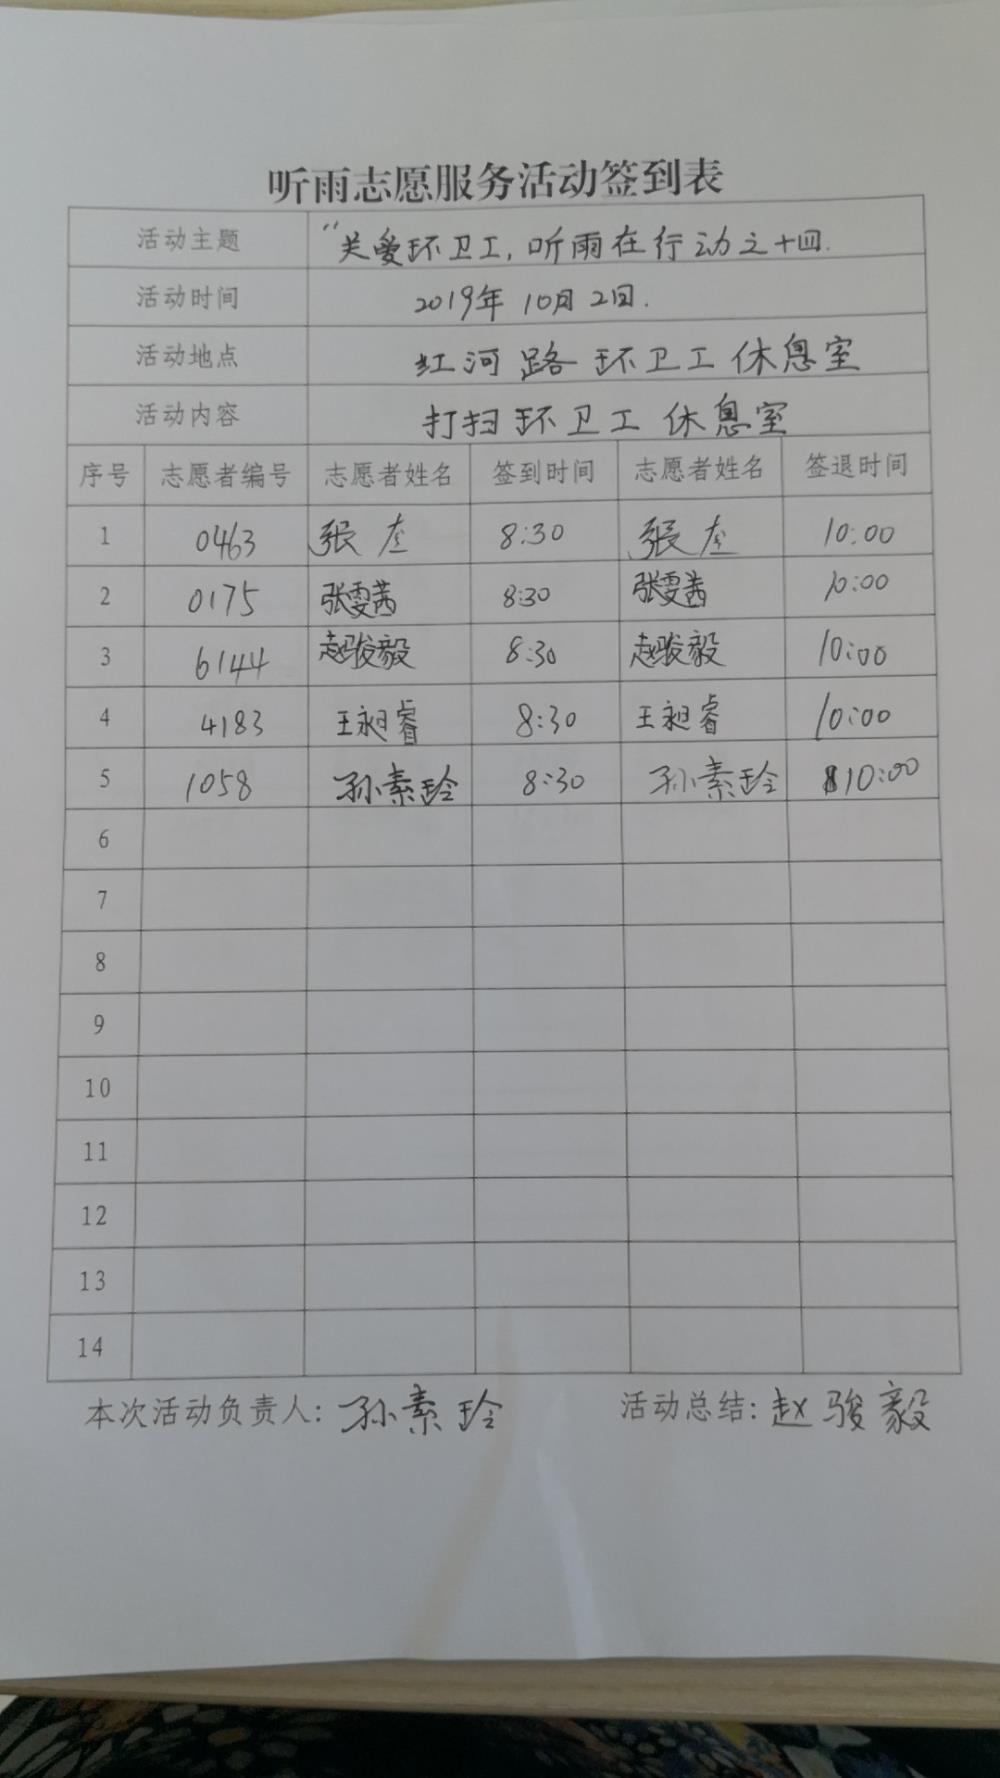 听雨志愿服务活动签到表
活动主题 "关爱环卫工,听雨在行动之十四.
活动时间 2019年10月2日.
活动地点 红河路环卫工休息室
活动内容 打扫环卫工休息室
序号 志愿者编号 志愿者姓名 签到时间 志愿者姓名 签退时间
1 0463 张奎 8:30 张奎 10:00
2 0175 张雯茜 8:30 张雯茜 10:00
3 6144 赵骏毅 8:30 赵骏毅 10:00
4 4183 王昶睿 8:30 王昶睿 10:00
5 1058 孙素玲 8:30 孙素玲 10:00
6
7
8
9
10
11
12
13
14
本次活动负责人: 孙素玲 活动总结: 赵骏毅